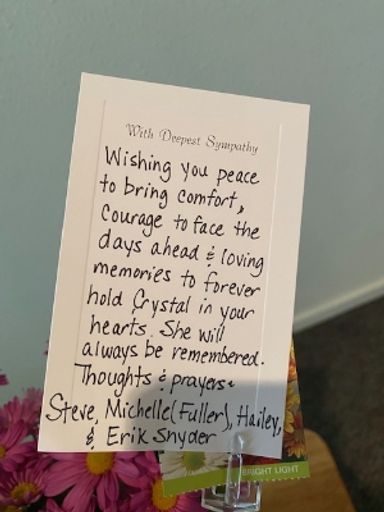 With Deepest Sympathy
Wishing you peace
to bring comfort,
Courage to face the
days ahead & loving
memories to forever
hold Crystal in your
hearts. She will
always be remembered.
Thoughts & prayers.
Steve, Michelle (Fuller), Hailey,
& Erik Snyder
BRIGHT LIGHT